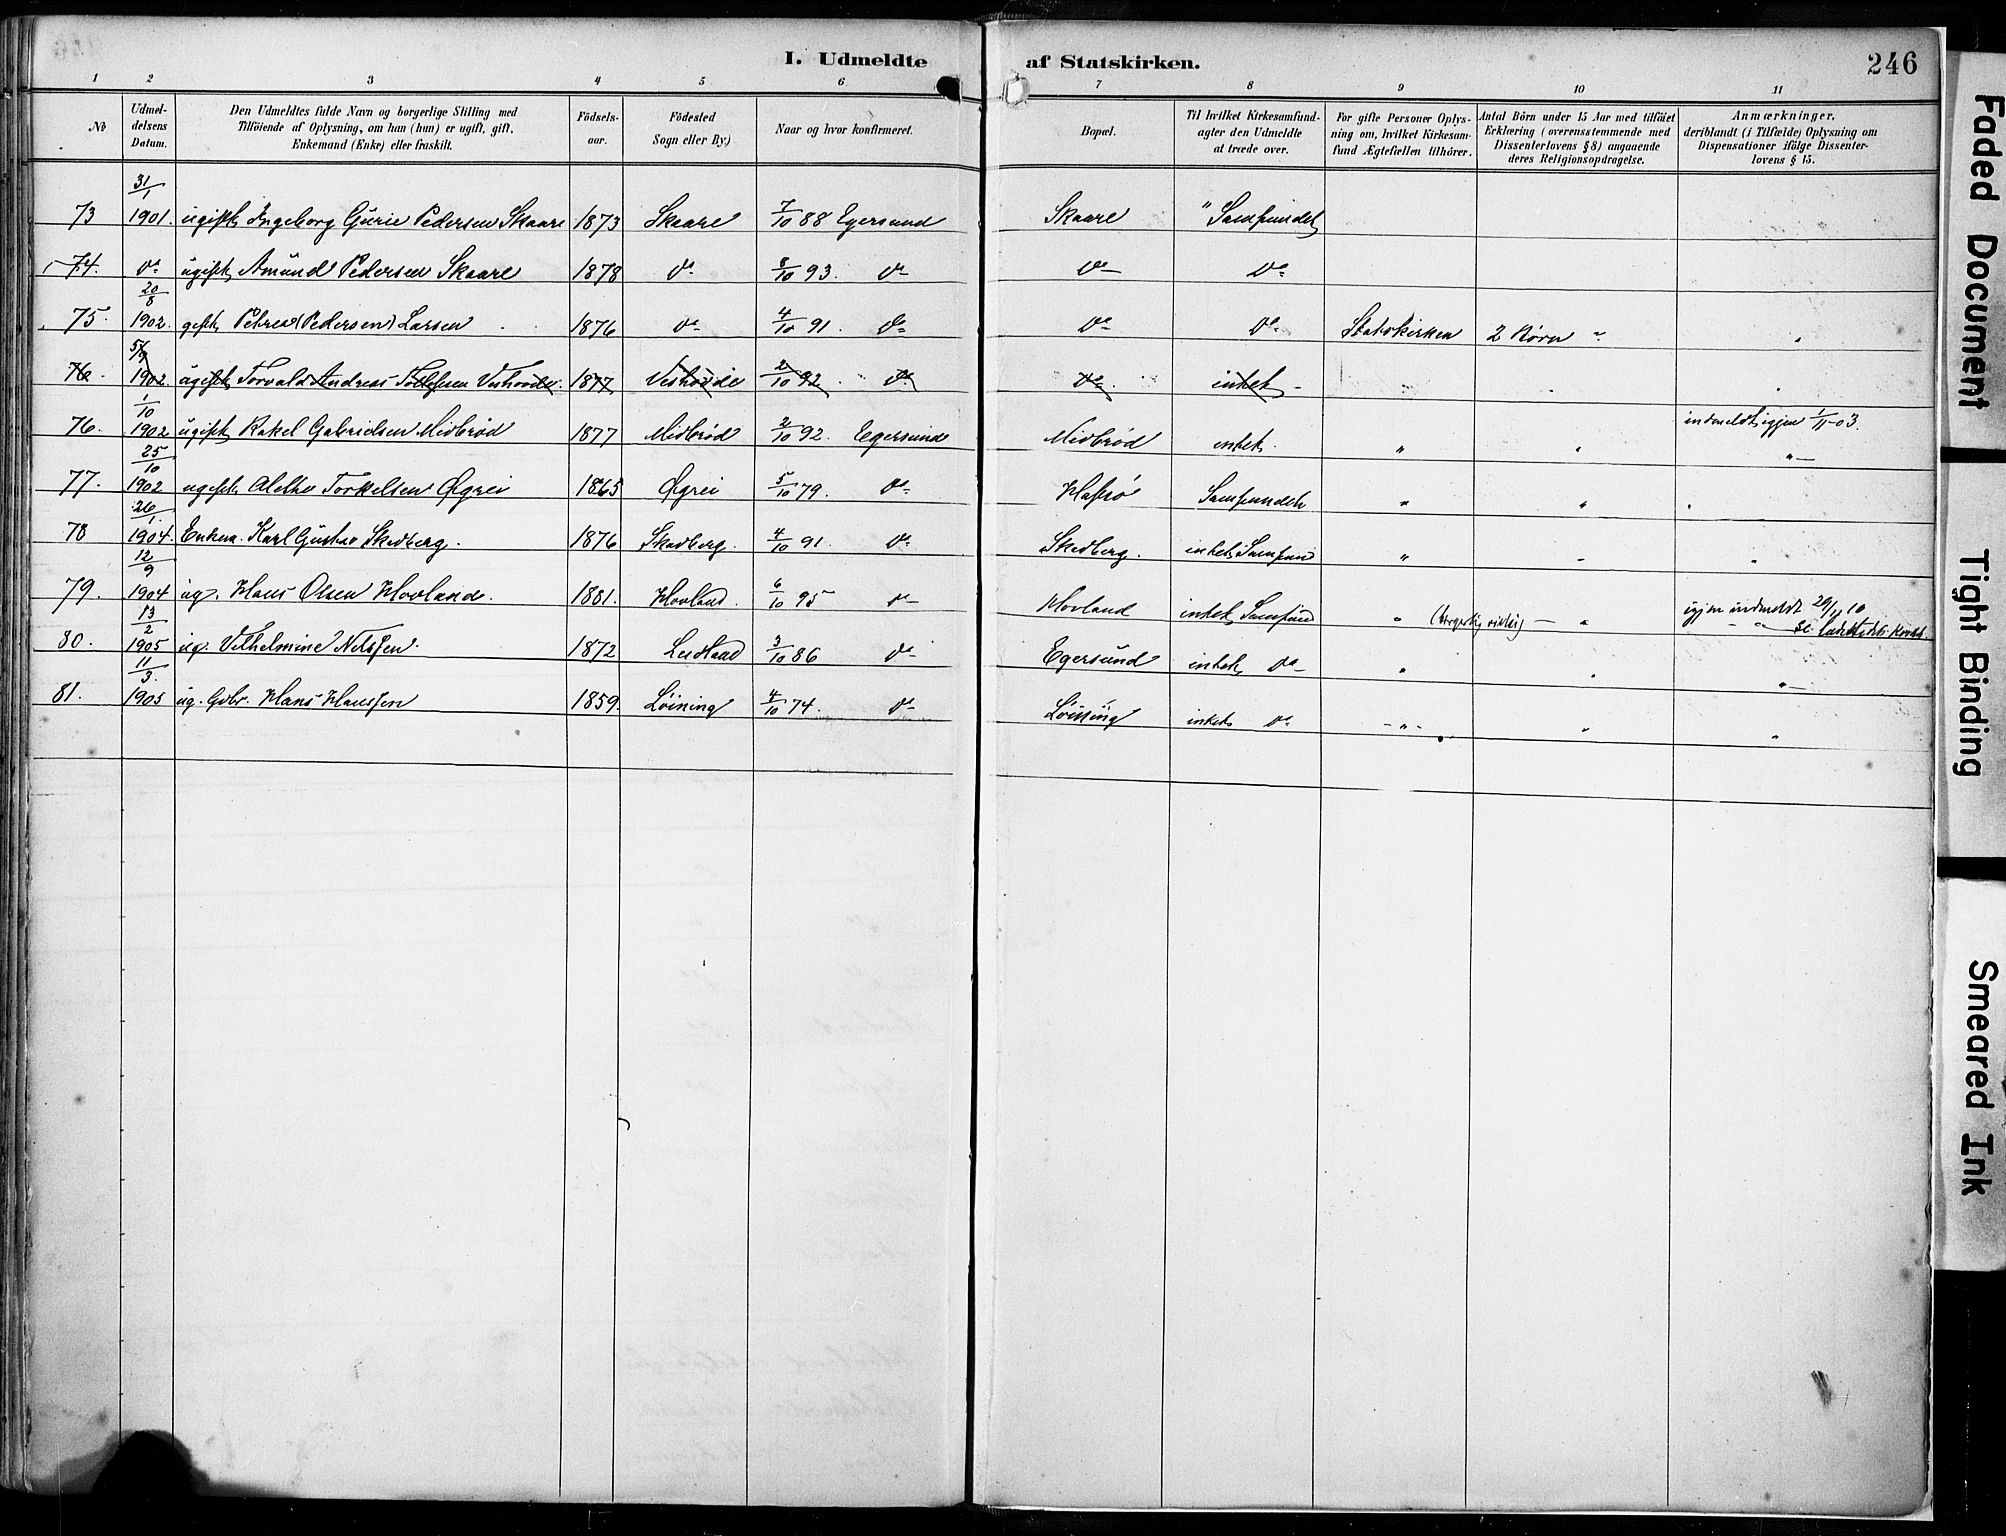 I. Udmeldte af Statskirken.
246
1 2 3 4 5 6 7 8 9 10 11
No
Udmel-
delsens
Datum.
Den Udmeldtes fulde Navn og borgerlige Stilling med
Tilföiende af Oplysning, om han (hun) er ugift, gift,
Enkemand (Enke) eller fraskilt.
Födsels-
aar.
Födested
Sogn eller By.)
Naar og hvor konfirmeret.
Bopæl.
Til hvilket Kirkesamfund-
agter den Udmeldte
at træde over.
For gifte Personer Oplys-
ning om, hvilket Kirkesam-
fund Ægtefællen tilhörer.
Antal Börn under 15 Aar med tilföiet
Erklæring (overensstemmende med
Dissenterlovens § 8) angaaende
deres Religionsopdragelse.
Anmærkninger,
deriblandt (i Tilfælde) Oplysning om
Dispensationer ifölge Dissenter-
lovens § 15.
73 31/1 1901. ugift Ingeborg Gurie Pedersen Skaare 1873 Skaare 7/10 88 Egersund Skaare "Samfundet
74. do ugift Amund Pedersen Skaare 1878 do 8/10 93. do do do
75. 20/8 1902. gift Petrea (Pedersen) Larsen 1876 do 4/10 91. do do do Statskirken 2 Børn "
76. 5/9 1902. ugift Torvald Andreas Tollefsen 1877 2/10 92. do do intet -
76. 1/10 1902 ugift Rakel Gabrielsen Midbrød 1877 Midbrød 2/10 92. Egersund Midbrød intet. " " indmeldt igjen 1/11-03.
77. 25/10 1902 ugift Alethe Torkelsen Øgrei 1865 Øgrei 5/10 79. do Hafsø Samfundet " "
78 26/1. 1904. Enkem. Karl Gustav Skedberg. 1876 Skadberg. 4/10 91 do Skedberg. intet Samfund "
79. 12/9 1904 ug. Hans Olsen Hovland. 1881. Hovland. 6/10 95 do Hovland intet Samfund " (borgerlig viet) - " igjen indmeldt
80. 13/2 1905 ug. Vilhelmine Nilssen. 1872 3/10 86 do Egersund intet do "
81. 11/3. 1905 ug. Gdbr. Hans Hanssen 1859. Løining 4/10 74. do Løining intet do - " -
Faded Document
Tight Binding
Smeared Ink